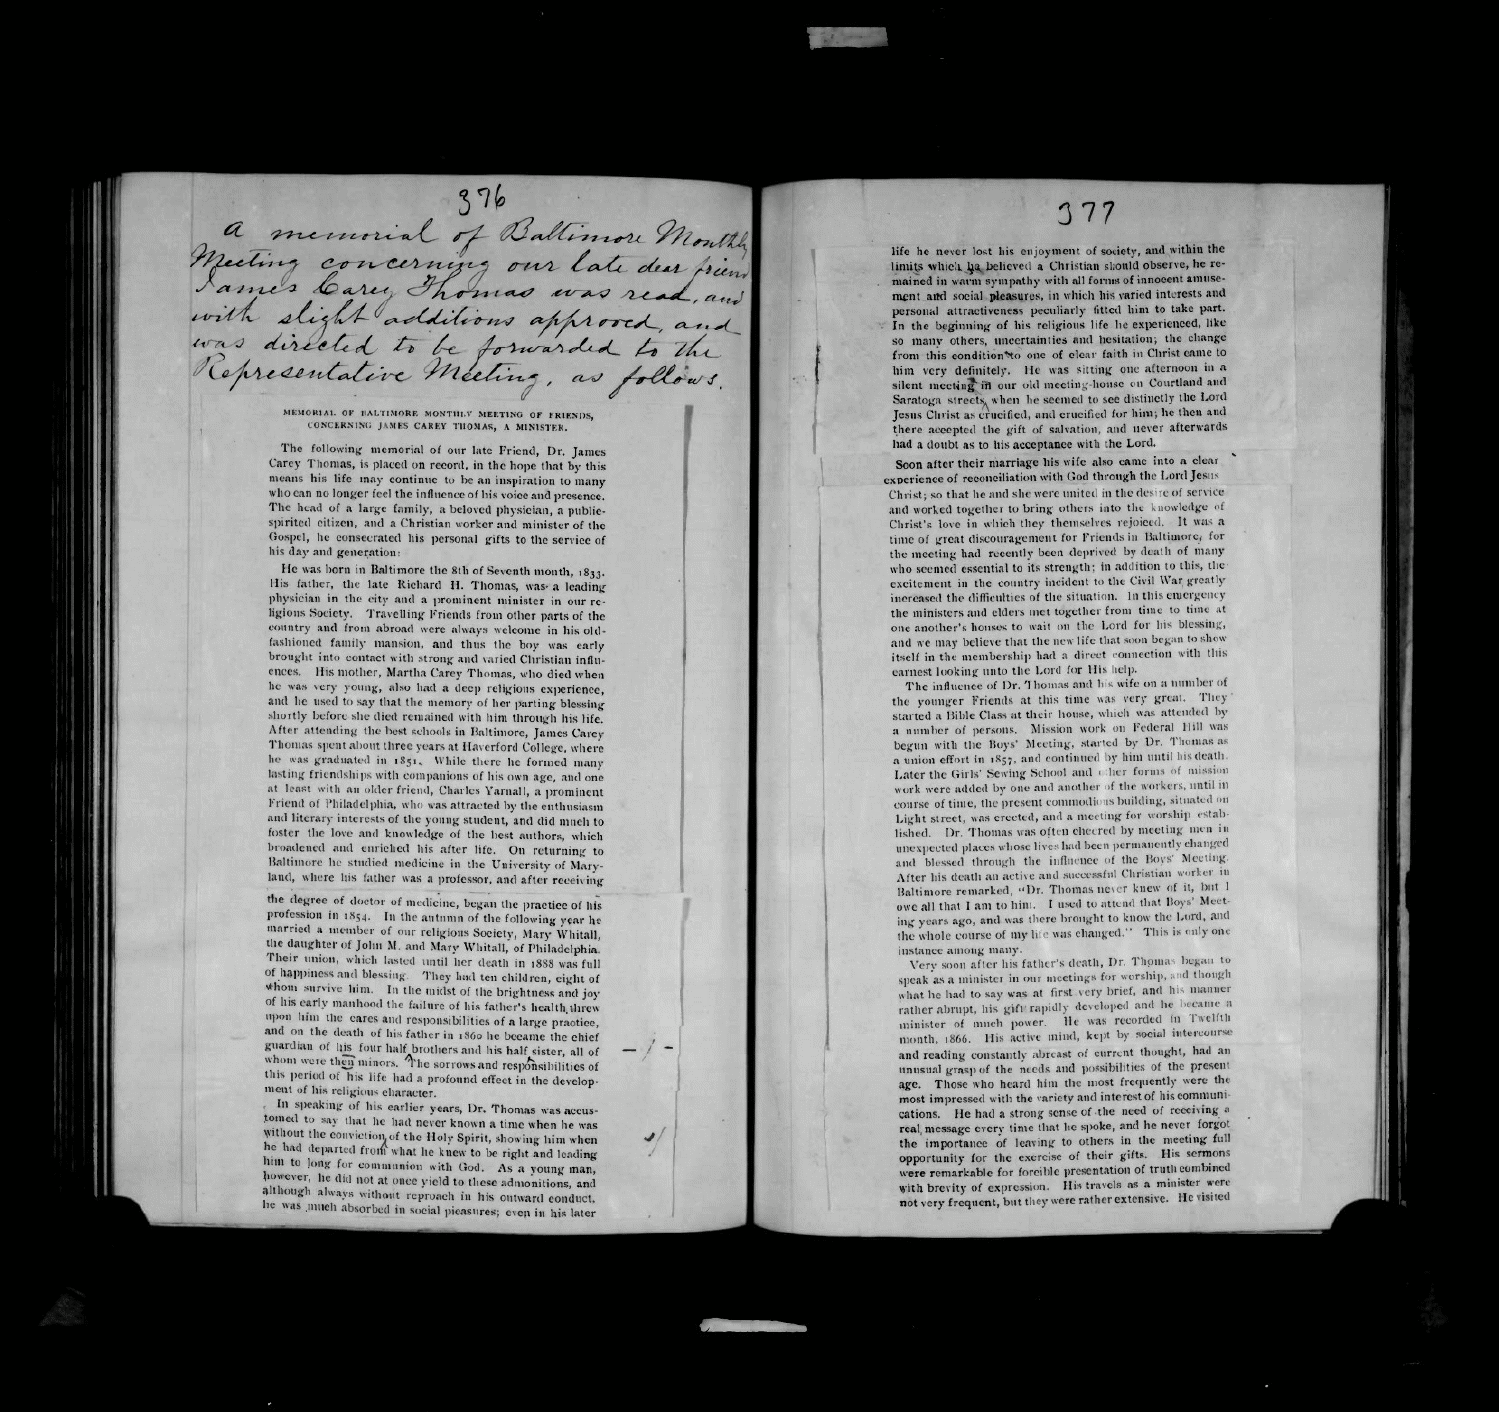 376
A memorial of Baltimore Monthly
Meeting concerning our late dear friend
James Carey Thomas was read, and
with slight additions approved, and
was directed to be forwarded to the
Representative Meeting, as follows.
MEMORIAL OF BALTIMORE MONTHLY MEETING OF FRIENDS,
CONCERNING JAMES CAREY THOMAS, A MINISTER.
The following memorial of our late Friend, Dr. James
Carey Thomas, is placed on record, in the hope that by this
means his life may continue to be an inspiration to many
who can no longer feel the influence of his voice and presence.
The head of a large family, a beloved physician, a public-
spirited citizen, and a Christian worker and minister of the
Gospel, he consecrated his personal gifts to the service of
his day and generation:
He was born in Baltimore the 8th of Seventh month, 1833.
His father, the late Richard H. Thomas, was a leading
physician in the city and a prominent minister in our re-
ligious Society. Travelling Friends from other parts of the
country and from abroad were always welcome in his old-
fashioned family mansion, and thus the boy was early
brought into contact with strong and varied Christian influ-
ences. His mother, Martha Carey Thomas, who died when
he was very young, also had a deep religious experience,
and he used to say that the memory of her parting blessing
shortly before she died remained with him through his life.
After attending the best schools in Baltimore, James Carey
Thomas spent about three years at Haverford College, where
he was graduated in 1851. While there he formed many
lasting friendships with companions of his own age, and one
at least with an older friend, Charles Yarnall, a prominent
Friend of Philadelphia, who was attracted by the enthusiasm
and literary interests of the young student, and did much to
foster the love and knowledge of the best authors, which
broadened and enriched his after life. On returning to
Baltimore he studied medicine in the University of Mary-
land, where his father was a professor, and after receiving
the degree of doctor of medicine, began the practice of his
profession in 1854. In the autumn of the following year he
married a member of our religious Society, Mary Whitall,
the daughter of John M. and Mary Whitall, of Philadelphia.
Their union, which lasted until her death in 1888 was full
of happiness and blessing. They had ten children, eight of
whom survive him. In the midst of the brightness and joy
of his early manhood the failure of his father's health threw
upon him the cares and responsibilities of a large practice,
and on the death of his father in 1860 he became the chief
guardian of his four half brothers and his half sister, all of
whom were then minors. The sorrows and responsibilities of
this period of his life had a profound effect in the develop-
ment of his religious character.
In speaking of his earlier years, Dr. Thomas was accus-
tomed to say that he had never known a time when he was
without the conviction of the Holy Spirit, showing him when
he had departed from what he knew to be right and leading
him to long for communion with God. As a young man,
however, he did not at once yield to these admonitions, and
although always without reproach in his outward conduct,
he was much absorbed in social pleasures; even in his later
377
life he never lost his enjoyment of society, and within the
limits which he believed a Christian should observe, he re-
mained in warm sympathy with all forms of innocent amuse-
ment and social pleasures, in which his varied interests and
personal attractiveness peculiarly fitted him to take part.
In the beginning of his religious life he experienced, like
so many others, uncertainties and hesitation; the change
from this condition to one of clear faith in Christ came to
him very definitely. He was sitting one afternoon in a
silent meeting in our old meeting-house on Courtland and
Saratoga streets, when he seemed to see distinctly the Lord
Jesus Christ as crucified, and crucified for him; he then and
there accepted the gift of salvation, and never afterwards
had a doubt as to his acceptance with the Lord.
Soon after their marriage his wife also came into a clear
experience of reconciliation with God through the Lord Jesus
Christ; so that he and she were united in the desire of service
and worked together to bring others into the knowledge of
Christ's love in which they themselves rejoiced. It was a
time of great discouragement for Friends in Baltimore, for
the meeting had recently been deprived by death of many
who seemed essential to its strength; in addition to this, the
excitement in the country incident to the Civil War greatly
increased the difficulties of the situation. In this emergency
the ministers and elders met together from time to time at
one another's houses to wait on the Lord for his blessing,
and we may believe that the new life that soon began to show
itself in the membership had a direct connection with this
earnest looking unto the Lord for His help.
The influence of Dr. Thomas and his wife on a number of
the younger Friends at this time was very great. They
started a Bible Class at their house, which was attended by
a number of persons. Mission work on Federal Hill was
begun with the Boys' Meeting, started by Dr. Thomas as
a union effort in 1857, and continued by him until his death.
Later the Girls' Sewing School and other forms of mission
work were added by one and another of the workers, until in
course of time, the present commodious building, situated on
Light street, was erected, and a meeting for worship estab-
lished. Dr. Thomas was often cheered by meeting men in
unexpected places whose lives had been permanently changed
and blessed through the influence of the Boys' Meeting.
After his death an active and successful Christian worker in
Baltimore remarked, "Dr. Thomas never knew of it, but I
owe all that I am to him. I used to attend that Boys' Meet-
ing years ago, and was there brought to know the Lord, and
the whole course of my life was changed." This is only one
instance among many.
Very soon after his father's death, Dr. Thomas began to
speak as a minister in our meetings for worship, and though
what he had to say was at first very brief, and his manner
rather abrupt, his gift rapidly developed and he became a
minister of much power. He was recorded in Twelfth
month, 1866. His active mind, kept by social intercourse
and reading constantly abreast of current thought, had an
unusual grasp of the needs and possibilities of the present
age. Those who heard him the most frequently were the
most impressed with the variety and interest of his communi-
cations. He had a strong sense of the need of receiving a
real message every time that he spoke, and he never forgot
the importance of leaving to others in the meeting full
opportunity for the exercise of their gifts. His sermons
were remarkable for forcible presentation of truth combined
with brevity of expression. His travels as a minister were
not very frequent, but they were rather extensive. He visited